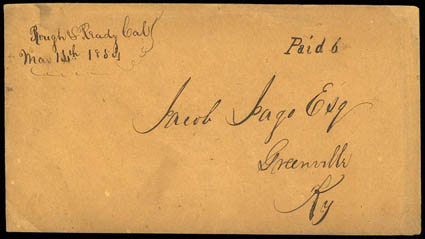 Rough & Ready Cal
Mar 14th 1854
Paid 6
Jacob Jago Esq
Greenville
Ky